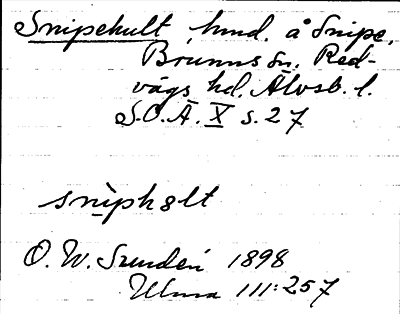 Snipehult, hmd. å Snipe,
Brunns sn. Red-
vägs hd. Älvsb. l.
S.O.Ä. X s. 27
snìphult
O. W. Sundén 1898
Ulma 111:257